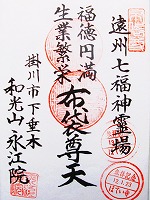 遠州七福神霊場
福徳円満
生業繁栄
布袋尊天
掛川市下垂木
和光山永江院